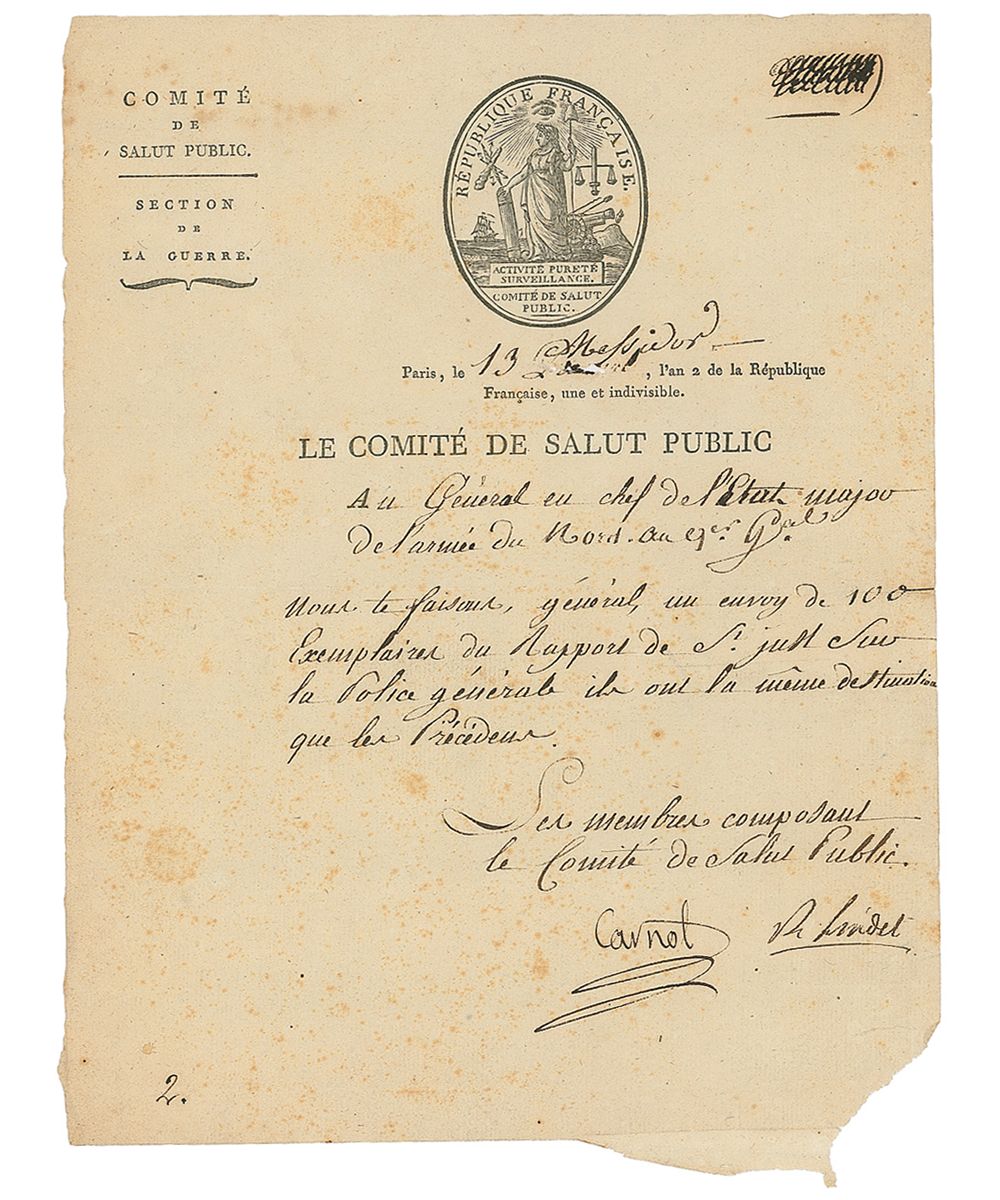 COMITÉ
DE
SALUT PUBLIC.
SECTION
DE
LA GUERRE.
RÉPUBLIQUE FRANÇAISE.
ACTIVITÉ PURETÉ
SURVEILLANCE.
COMITÉ DE SALUT
PUBLIC.
Paris, le 13 Messidor, l'an 2 de la République
Française, une et indivisible.
LE COMITÉ DE SALUT PUBLIC
Au Général en chef de l'Etat major
de l'armée du Nord. au Gal.
Nous te faisons, général, un envoy de 100
Exemplaires du Rapport de St. just Sur
la Police générale ils ont la même destination
que les Précédens.
Les membres composant
le Comité de Salut Public.
Carnot R Lindet
2.